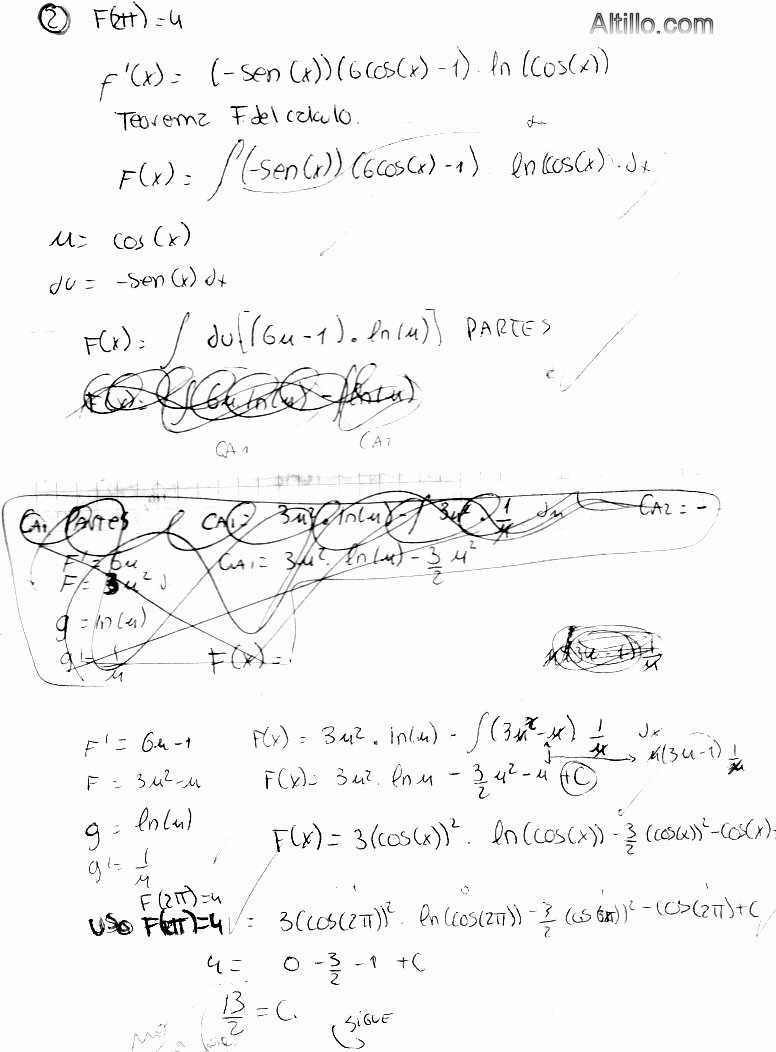 Altillo.com
② F(2π)=4
f'(x) = (-sen(x))(6cos(x)-1). ln(cos(x))
Teorema F del calculo.
F(x) = ∫(-sen(x))(6cos(x)-1) ln(cos(x).dx
u= cos(x)
du = -sen(x) dx
F(x) = ∫ du[(6u-1).ln(u)] PARTES
CA1 CA2
CA1 PARTES CA1= 3u².ln(u) - ∫3u².1/u du CA2=-
F'=6u CA1= 3u².ln(u) - 3/2 u²
F= 3u²
g=ln(u)
g'=1/u F(x)=
F'= 6u-1 F(x) = 3u².ln(u) - ∫(3u²-u) 1/u dx u(3u-1) 1/u
F= 3u²-u F(x)= 3u².ln u - 3/2 u²-u+C
g= ln(u) F(x) = 3(cos(x))². ln(cos(x)) - 3/2 (cos(x))²-cos(x)+
g'= 1/u
F(2π)=4
USO F(2π)=4 = 3(cos(2π))². ln(cos(2π)) - 3/2 (cos(2π))²-cos(2π)+C
4= 0 - 3/2 - 1 +C
13/2 = C. SIGUE